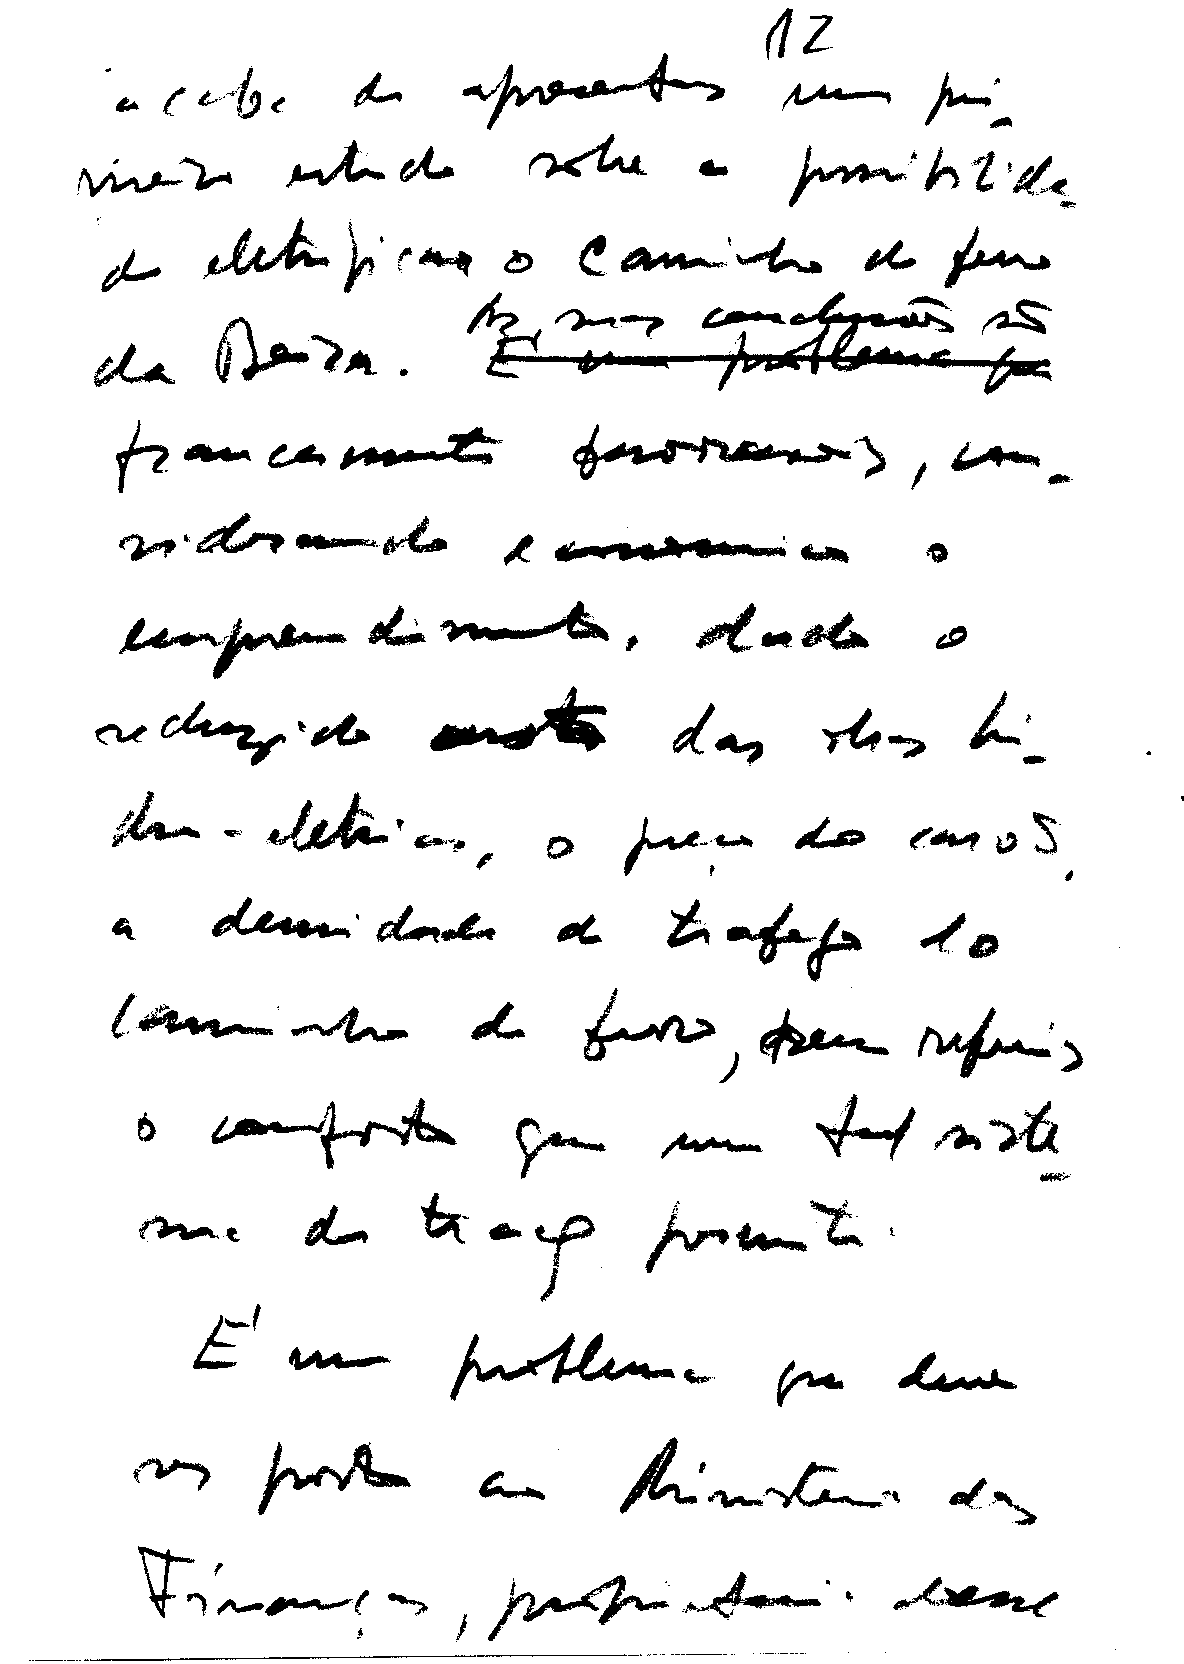 12
acaba de apresentar um pri-
meiro estudo sobre a possibilida-
de eletrificar o caminho de ferro
As suas conclusões são
da Beira. É um problema que
francamente favoraveis, con-
siderando economico o
emprendimento, dado o
reduzido custo das obras hi-
dro-eletricas, o preço do carvão,
a densidade de trafego do
caminho de ferro, sem referir
o conforto que um tal siste-
ma de tracção permite.
É um problema que deve
ser posto ao Ministerio das
Finanças, proprietario desse